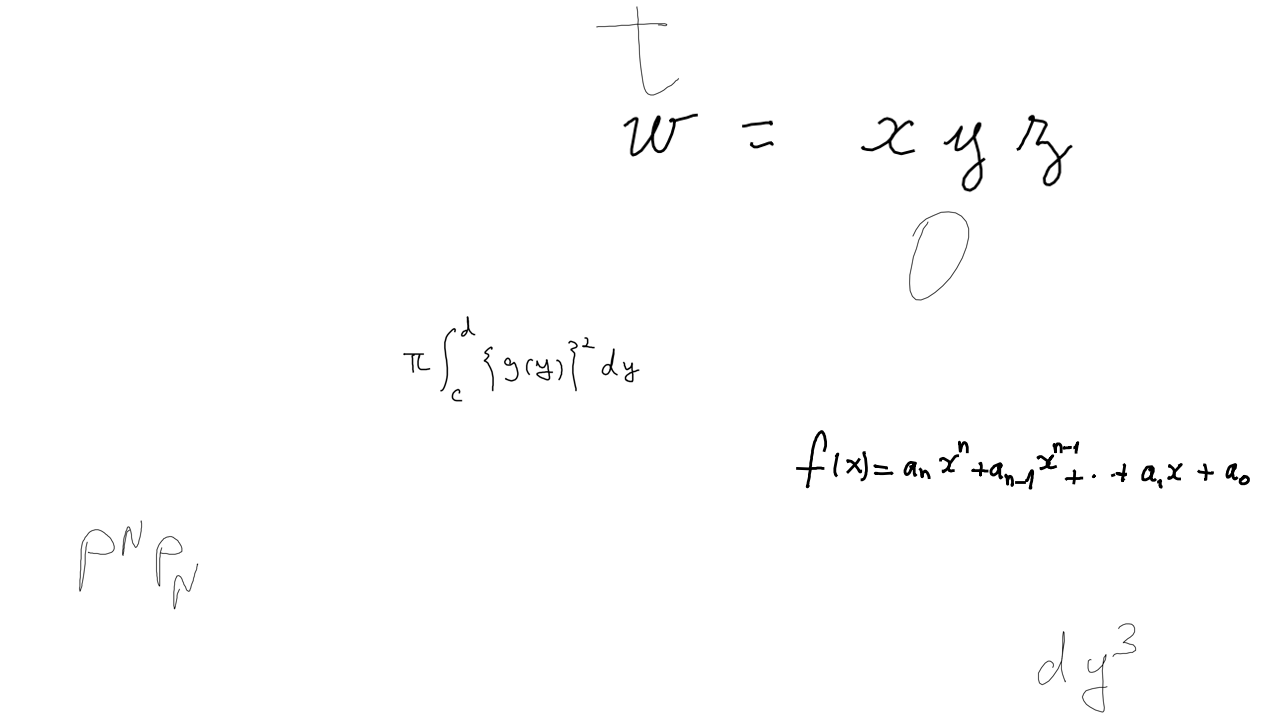 t
w = x y z
0
π∫_c^d {g(y)}^2 dy
f(x) = a_n x^n + a_{n-1} x^{n-1} + .. + a_1 x + a_0
P^N P_N
dy^3